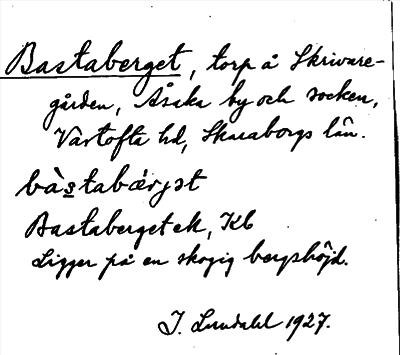 Bastaberget, torp å Skrivare-
gården, Åsaka by och socken,
Vartofta hd, Skaraborgs län.
bàstabǽrjət
Bastaberget ek, Kb
Ligger på en skogig bergshöjd.
J. Lundahl 1927.